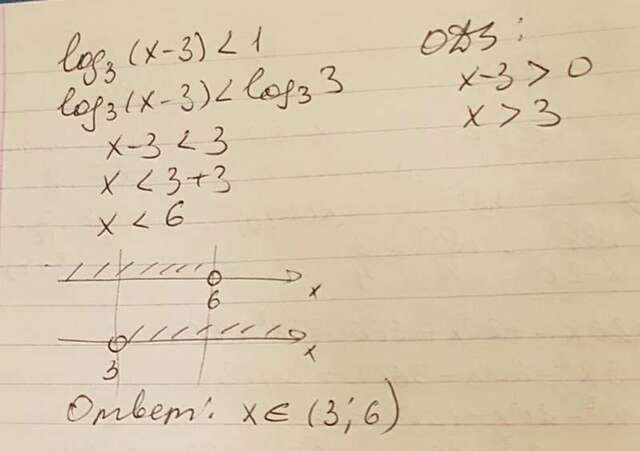 log₃(x-3) < 1
log₃(x-3) < log₃3
x-3 < 3
x < 3+3
x < 6
ОДЗ:
x-3 > 0
x > 3
6
x
3
x
Ответ: x ∈ (3; 6)